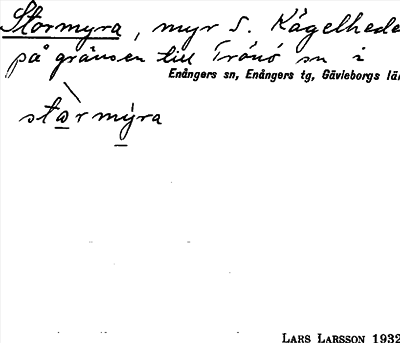 Stormyra, myr S. Kågelhede
på gränsen till Trönö sn i
Enångers sn, Enångers tg, Gävleborgs län
starmýra
LARS LARSSON 1932